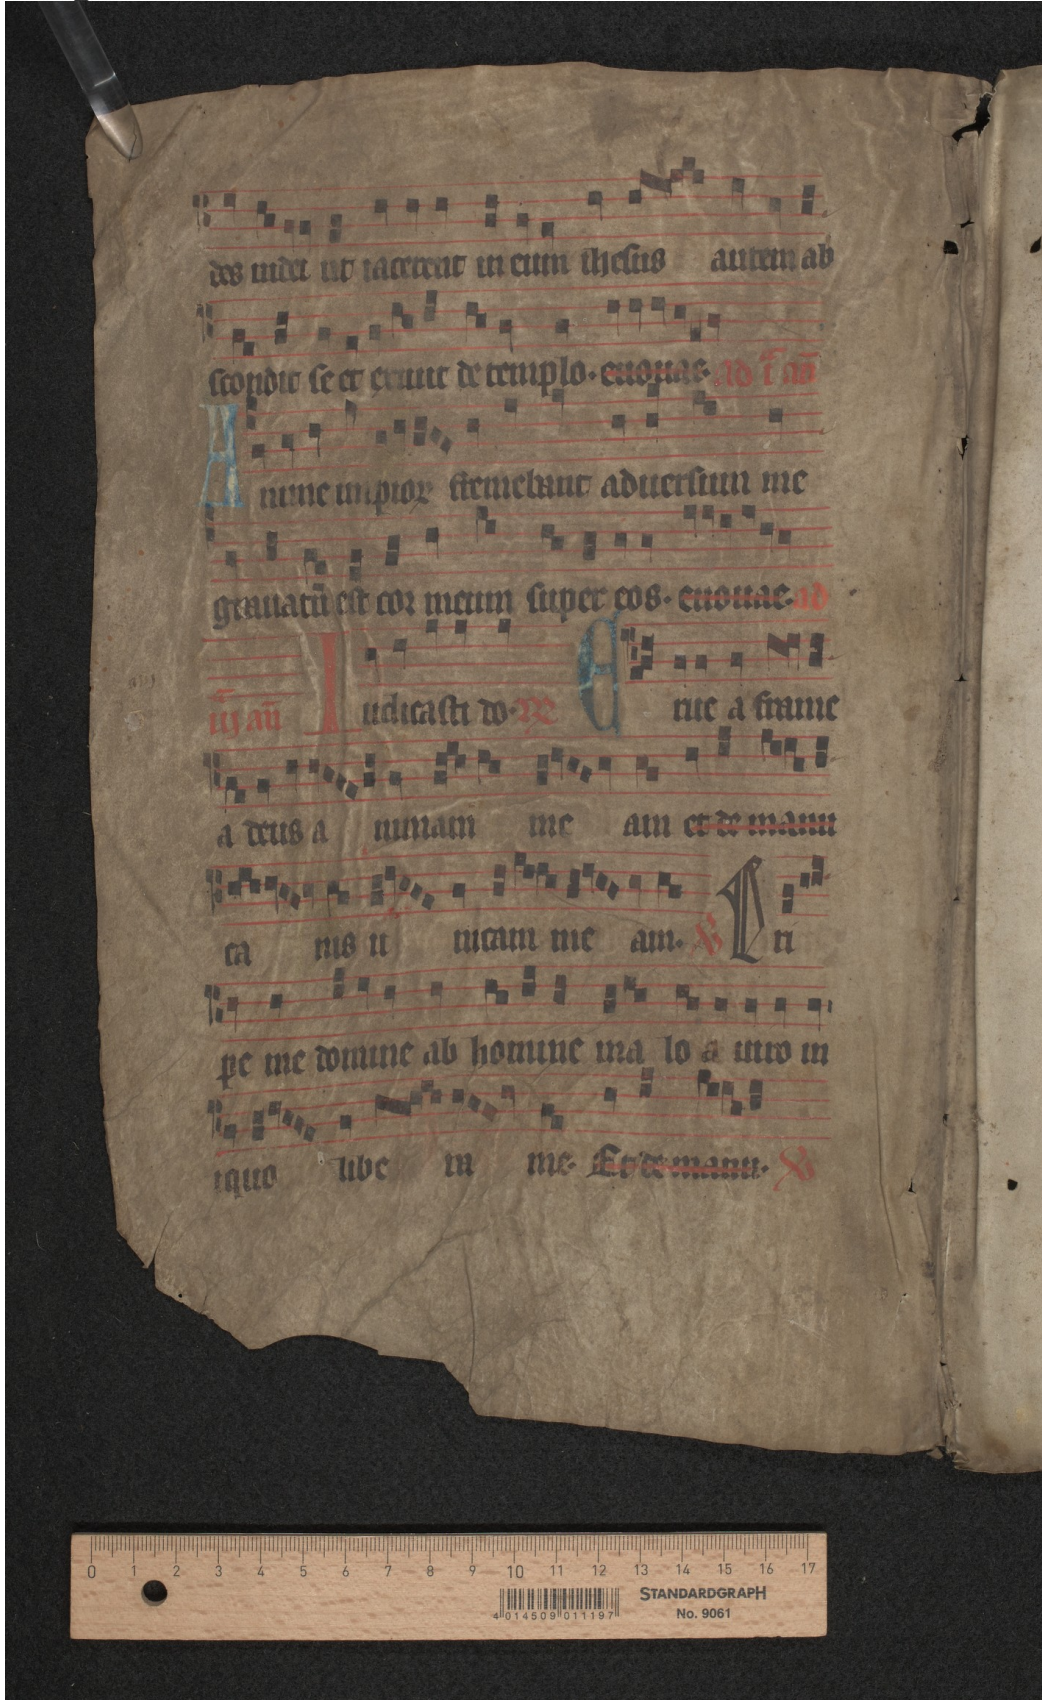 des iudei ut iacerent in eum ihesus autem ab
scondit se et exiuit de templo. euouae. ad t͞ an̄
Anime impioꝝ fremebant aduersum me
grauatū est cor meum super eos. euouae. ad
iij an̄ Iudicasti do. R Erue a frame
a deus a nimam me am et de manu
ca nis u nicam me am. V Eri
pe me domine ab homine ma lo a uiro in
iquo libe ra me. Et de manu. V
0 1 2 3 4 5 6 7 8 9 10 11 12 13 14 15 16 17
4 014509 011197
STANDARDGRAPH
No. 9061